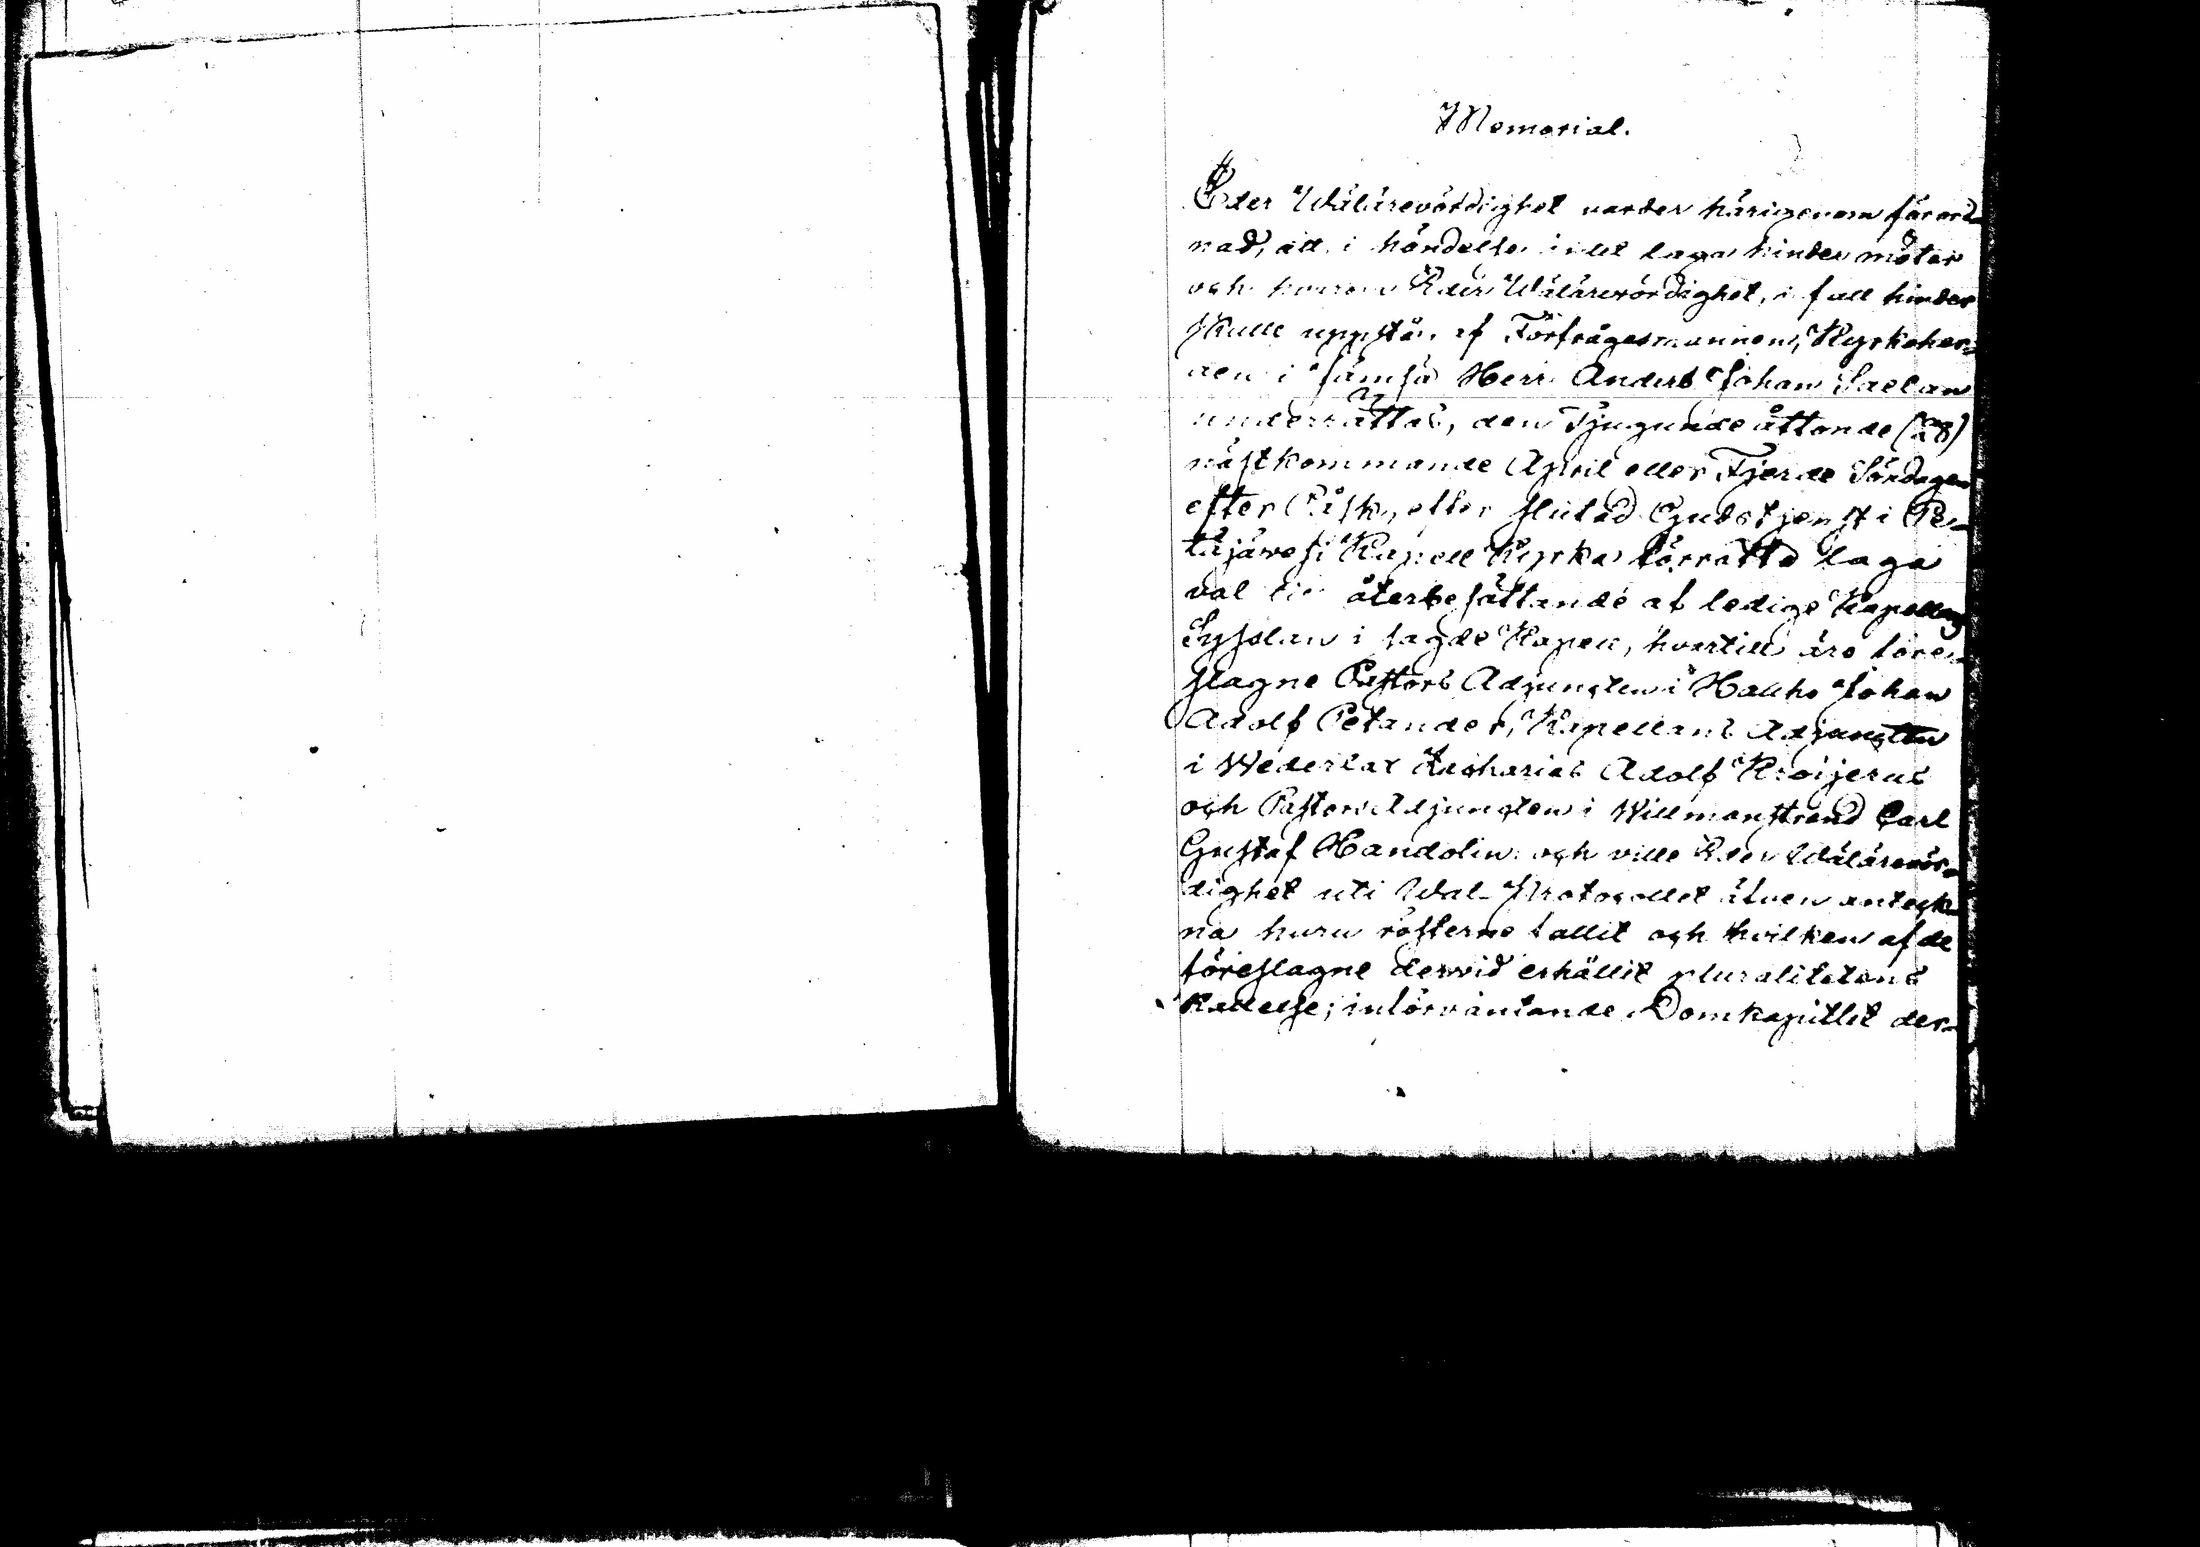 Memorial.
Eder Wälärevördighet varder härigenom förord-
nad, att i händelse intet laga hinder möter
och hvarom Eder Wälärevördighet, i fall hinder
skulle uppstå, af Förfrågesmannen, Kyrkoher-
den i Jämsä Herr Anders Johan Saelan
underrättas, den Tjugunde åttonde (28)
nästkommande April eller Fjerde Söndagen
efter Påsk, efter slutad Gudstjenst i Pe-
täjävesi Kapell Kyrka förrätta laga
val till återbesättande af lediga Kapellans
Sysslan i sagde Kapell, hvartill äro före-
slagne Pastors Adjuncten i Hauho Johan
Adolf Petander, Kapellans Adjuncten
i Wederlax Zacharias Adolf Kröijerus
och Pastors Adjuncten i Willmanstrand Carl
Gustaf Handolin: och ville Eder Wälärevör-
dighet uti Wal-Protocollet äfven anteck-
na huru rösterne fallit och hvilken af de
föreslagne dervid erhållit pluralitetens
kallelse; införväntande Domkapitlet der-